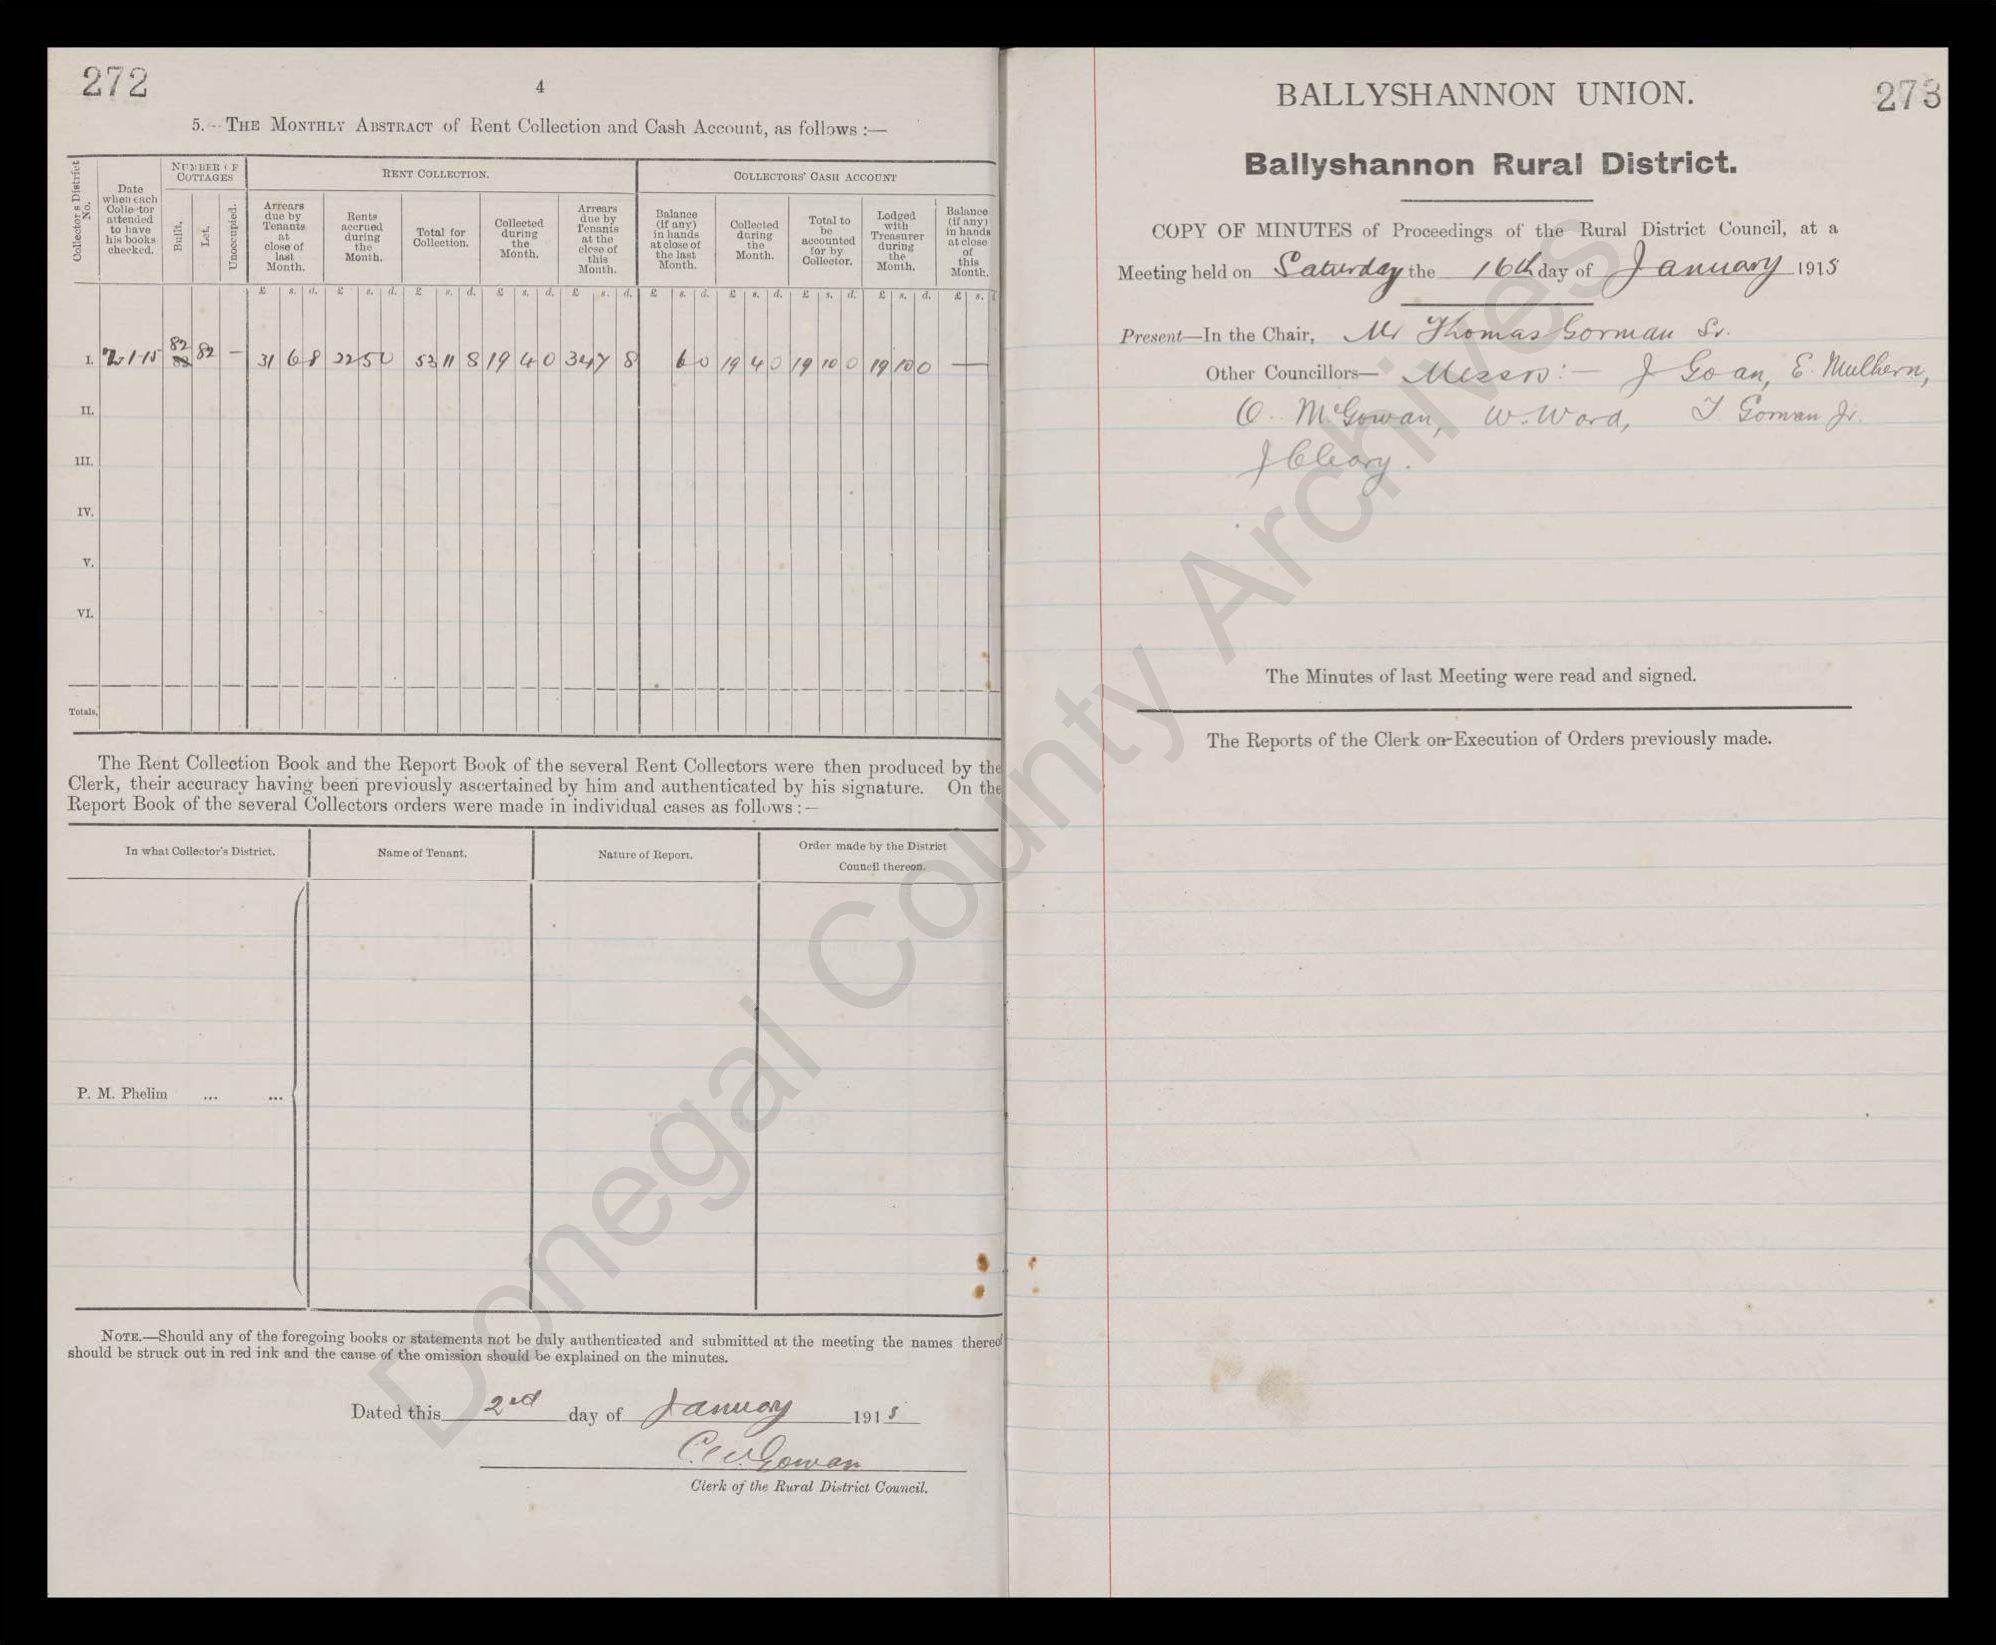 272
4
5.— THE MONTHLY ABSTRACT of Rent Collection and Cash Account, as follows :—
Collector's District No.
Date when each Collector attended to have his books checked.
NUMBER OF COTTAGES
Built.
Let.
Unoccupied.
RENT COLLECTION.
Arrears due by Tenants at close of last Month.
Rents accrued during the Month.
Total for Collection.
Collected during the Month.
Arrears due by Tenants at the close of this Month.
COLLECTORS' CASH ACCOUNT
Balance (if any) in hands at close of the last Month.
Collected during the Month.
Total to be accounted for by Collector.
Lodged with Treasurer during the Month.
Balance (if any) in hands at close of this Month.
£ s. d. £ s. d. £ s. d. £ s. d. £ s. d. £ s. d. £ s. d. £ s. d. £ s. d. £ s.
I. 2-1-15 82 82 — 31 6 8 22 5 0 53 11 8 19 4 0 34 7 8 6 0 19 4 0 19 10 0 19 10 0 —
II.
III.
IV.
V.
VI.
Totals,
The Rent Collection Book and the Report Book of the several Rent Collectors were then produced by the
Clerk, their accuracy having been previously ascertained by him and authenticated by his signature. On the
Report Book of the several Collectors orders were made in individual cases as follows :—
In what Collector's District.
Name of Tenant.
Nature of Report.
Order made by the District
Council thereon.
P. M. Phelim ... ...
NOTE.—Should any of the foregoing books or statements not be duly authenticated and submitted at the meeting the names thereof
should be struck out in red ink and the cause of the omission should be explained on the minutes.
Dated this 2nd day of January 1915
C. W. Gowan
Clerk of the Rural District Council.
273
BALLYSHANNON UNION.
Ballyshannon Rural District.
COPY OF MINUTES of Proceedings of the Rural District Council, at a
Meeting held on Saturday the 16th day of January 1915
Present—In the Chair, Mr Thomas Gorman Sr.
Other Councillors— Messrs :— J Goan, E. Mulhern,
O. McGowan, W. Ward, T Gorman Jr.
J Cleary.
The Minutes of last Meeting were read and signed.
The Reports of the Clerk on Execution of Orders previously made.
Donegal County Archives